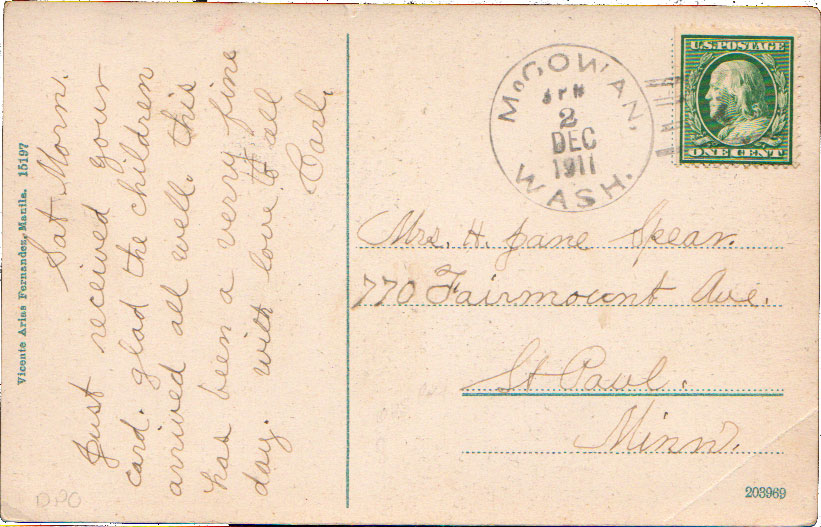 Sat Morn.
Just received your
card. glad the children
arrived all well. this
has been a verry fine
day. with love to all
Carl.
Vicente Arias Fernandez, Manila. 15197
McGOWAN,
2
DEC
1911
WASH.
U.S. POSTAGE
ONE CENT
Mrs. H. Jane Spear.
770 Fairmount Ave.
St Paul.
Minn.
203969
DPO